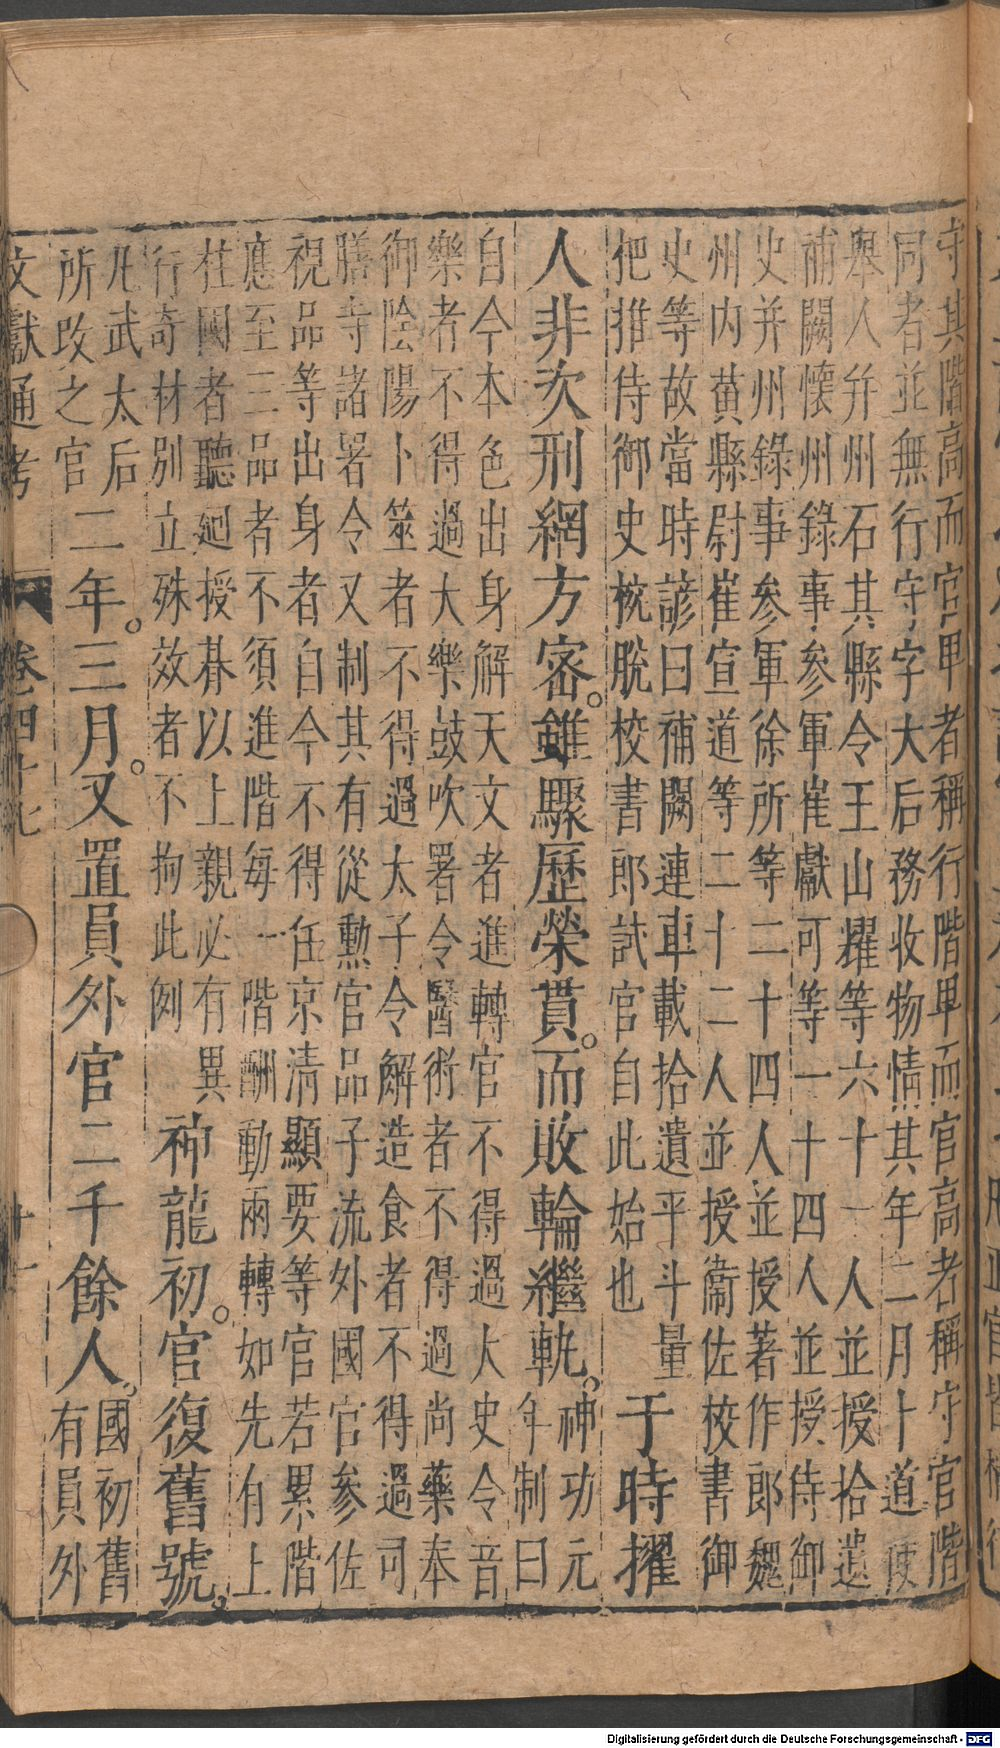 守其階高而官卑者稱行階卑而官高者稱守官階
同者並無行守字大后務收物情其年二月十道使
舉人并州石其縣令王山耀等六十一人並授拾遺
補闕懷州錄事參軍崔獻可等一十四人並授侍御
史并州錄事參軍徐所等二十四人並授著作郎魏
州內黃縣尉崔宣道等二十二人並授衞佐校書御
史等故當時諺曰補闕連車載拾遺平斗量
把推侍御史椀脫校書郎試官自此始也
于時擢
人非次刑網方密。雖驟歷榮貫。而敗輪繼軌。
神功元
年制曰
自今本色出身解天文者進轉官不得過大史令音
樂者不得過大樂鼓吹署令醫術者不得過尚藥奉
御陰陽卜筮者不得過太子令解造食者不得過司
膳寺諸署令又制其有從勳官品子流外國官參佐
視品等出身者自今不得任京清顯要等官若累階
應至三品者不須進階每一階酬勳兩轉如先有上
柱國者聽廻授朞以上親必有異
行奇材別立殊效者不拘此例
神龍初。官復舊號。
凡武太后
所改之官
二年。三月。又置員外官二千餘人。
國初舊
有員外
文獻通考
卷四十七
十一
Digitalisierung gefördert durch die Deutsche Forschungsgemeinschaft - DFG